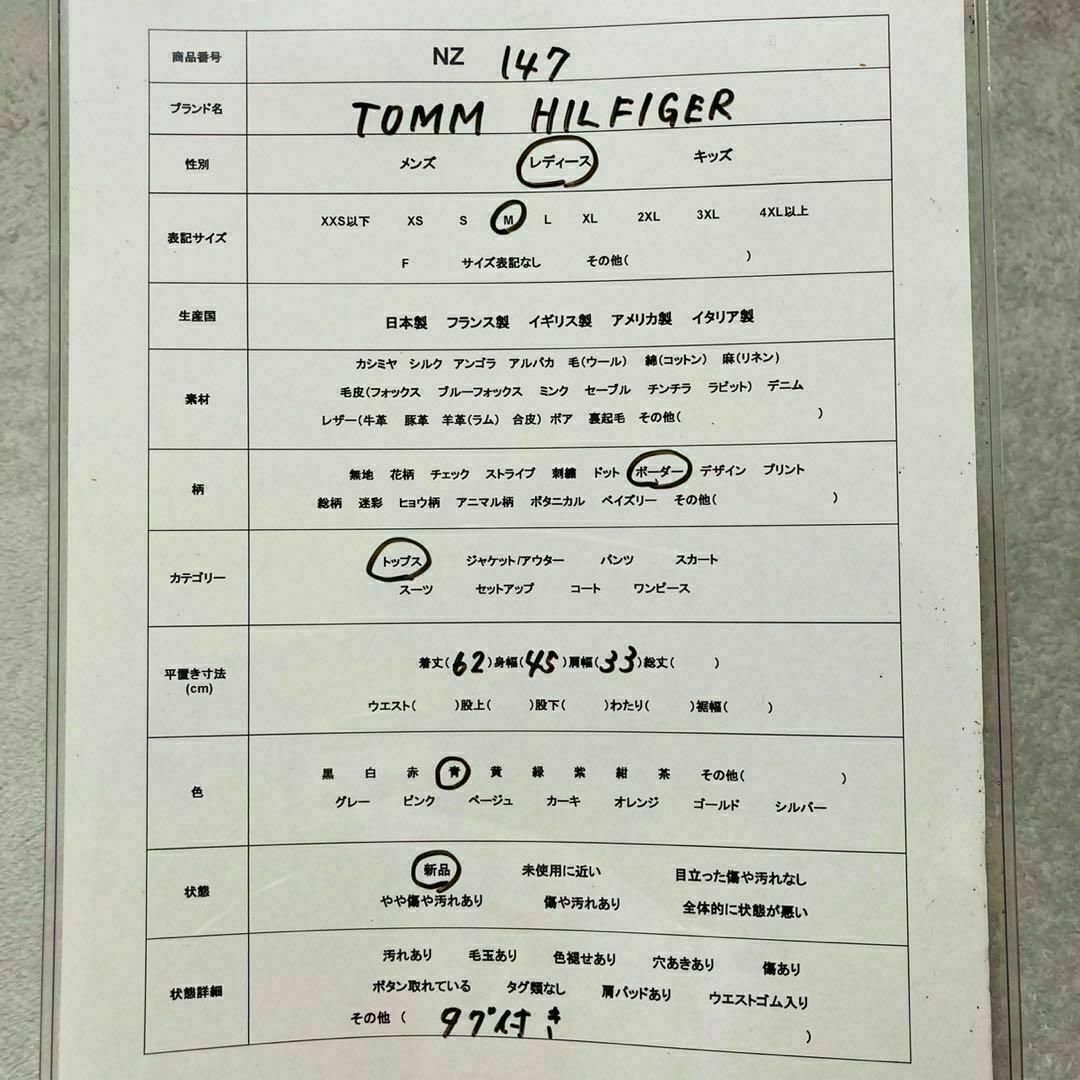 商品番号 NZ 147
ブランド名 TOMM HILFIGER
性別 メンズ レディース キッズ
表記サイズ XXS以下 XS S M L XL 2XL 3XL 4XL以上
F サイズ表記なし その他( )
生産国 日本製 フランス製 イギリス製 アメリカ製 イタリア製
素材 カシミヤ シルク アンゴラ アルパカ 毛(ウール) 綿(コットン) 麻(リネン)
毛皮(フォックス ブルーフォックス ミンク セーブル チンチラ ラビット) デニム
レザー(牛革 豚革 羊革(ラム) 合皮) ボア 裏起毛 その他( )
柄 無地 花柄 チェック ストライプ 刺繍 ドット ボーダー デザイン プリント
総柄 迷彩 ヒョウ柄 アニマル柄 ボタニカル ペイズリー その他( )
カテゴリー トップス ジャケット/アウター パンツ スカート
スーツ セットアップ コート ワンピース
平置き寸法 (cm) 着丈(62)身幅(45)肩幅(33)総丈( )
ウエスト( )股上( )股下( )わたり( )裾幅( )
色 黒 白 赤 青 黄 緑 紫 紺 茶 その他( )
グレー ピンク ベージュ カーキ オレンジ ゴールド シルバー
状態 新品 未使用に近い 目立った傷や汚れなし
やや傷や汚れあり 傷や汚れあり 全体的に状態が悪い
状態詳細 汚れあり 毛玉あり 色褪せあり 穴あきあり 傷あり
ボタン取れている タグ類なし 肩パッドあり ウエストゴム入り
その他 ( タグ付き )